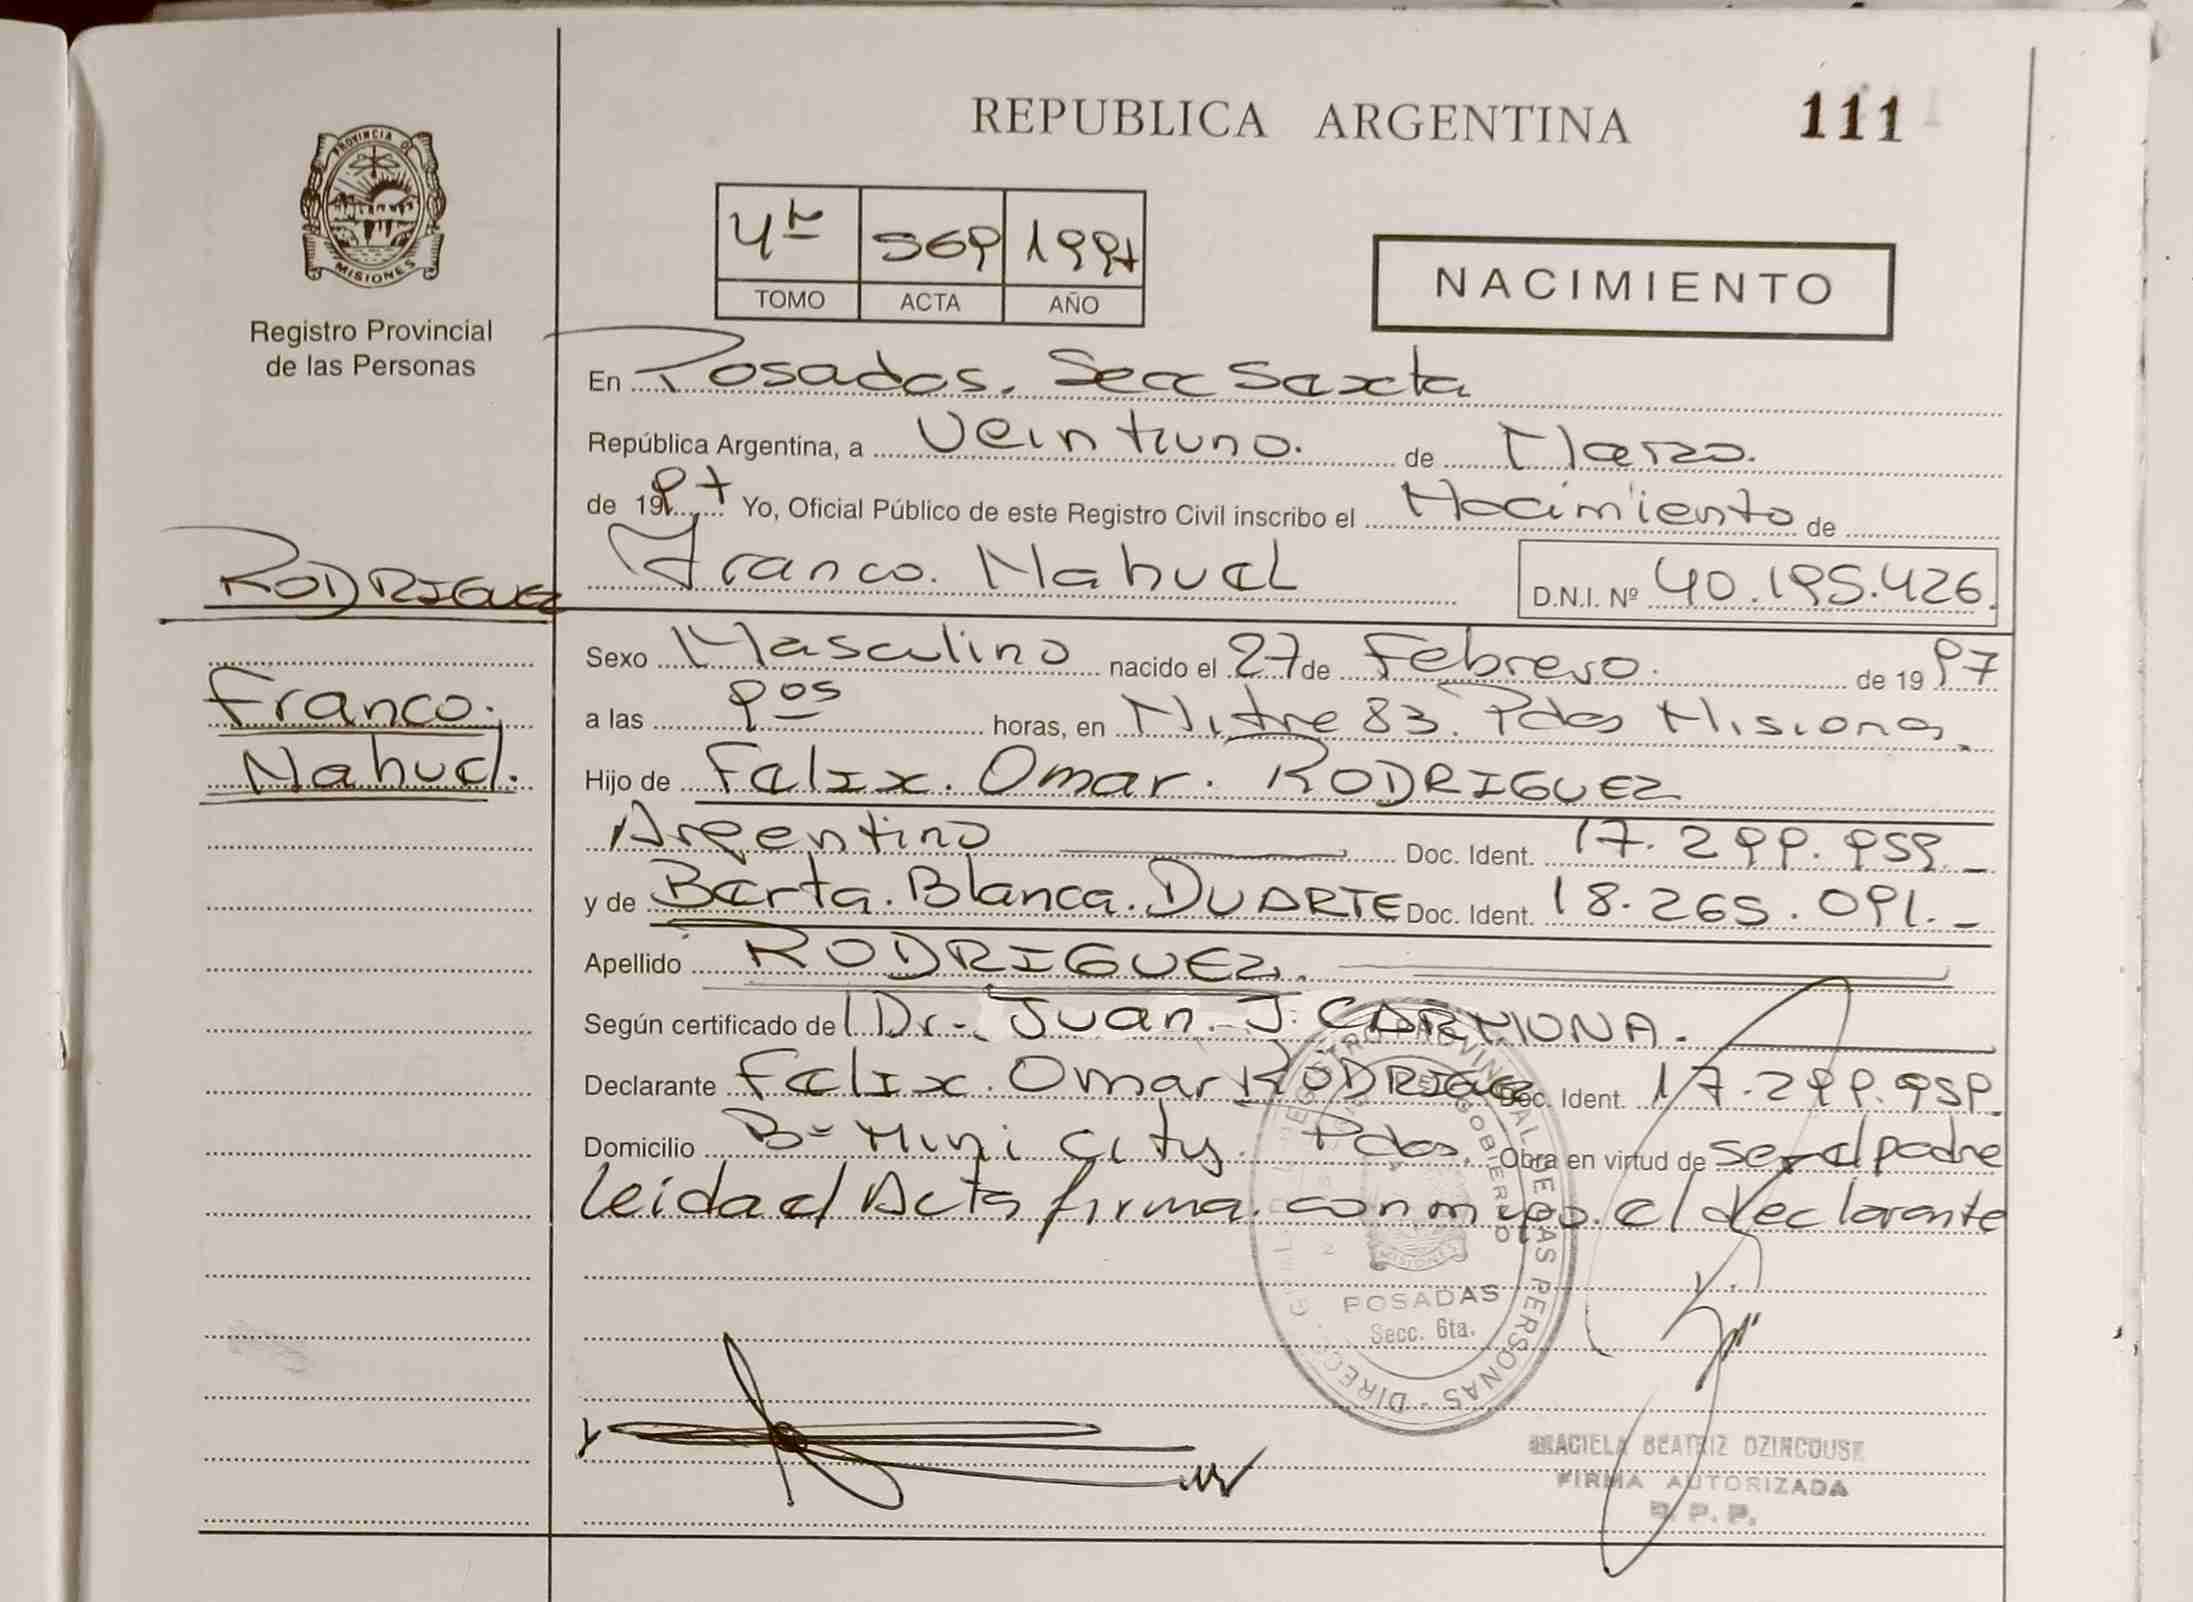 REPUBLICA ARGENTINA
111
PROVINCIA DE
MISIONES
Registro Provincial
de las Personas
4to 569 1997
TOMO ACTA AÑO
NACIMIENTO
En Posadas. Secc Sexta
República Argentina, a Veintiuno. de Marzo.
de 1997 Yo, Oficial Público de este Registro Civil inscribo el Nacimiento de
Franco. Nahuel D.N.I. Nº 40.195.426.
RODRIGUEZ
Franco.
Nahuel.
Sexo Masculino nacido el 27 de Febrero. de 1997
a las 9 05 horas, en Mitre 83. Pdas Misiones.
Hijo de Felix. Omar. RODRIGUEZ
Argentino Doc. Ident. 17.299.959._
y de Berta. Blanca. DUARTE Doc. Ident. 18.265.091._
Apellido RODRIGUEZ.
Según certificado de Dr. Juan. J. CARMONA.
Declarante Felix. Omar RODRIGUEZ Doc. Ident. 17.299.959.
Domicilio Bº Mini City. Pdas. Obra en virtud de ser el padre
leida el Acta firma. conmigo. el declarante
DIRECC. GRAL. DEL REGISTRO PROVINCIAL DE LAS PERSONAS
GOBIERNO
MISIONES
POSADAS
Secc. 6ta.
GRACIELA BEATRIZ DZINCOUSK
FIRMA AUTORIZADA
R. P. P.